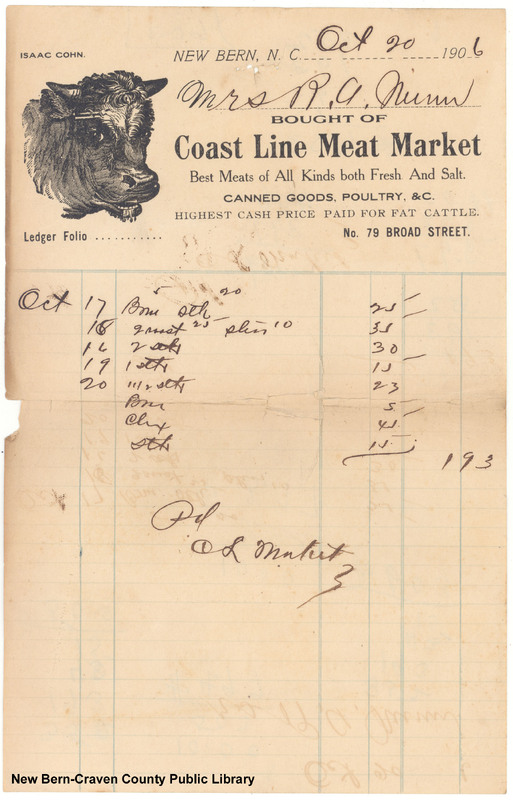 ISAAC COHN.
NEW BERN, N. C. Oct 20 1906
Mrs R. A. Nunn
BOUGHT OF
Coast Line Meat Market
Best Meats of All Kinds both Fresh And Salt.
CANNED GOODS, POULTRY, &C.
HIGHEST CASH PRICE PAID FOR FAT CATTLE.
Ledger Folio ........... No. 79 BROAD STREET.
5 20
Oct 17 Bone Stk 25
18 25 10 35
16 2 Stk 30
19 1 Stk 15
20 1 1/2 Stk 23
Bone 5
45
Stk 15
193
Pd
C L Market
New Bern-Craven County Public Library